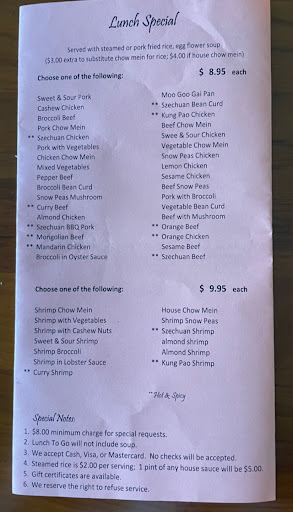 Lunch Special
Served with steamed or pork fried rice, egg flower soup
($3.00 extra to substitute chow mein for rice; $4.00 if house chow mein)
Choose one of the following: $ 8.95 each
Sweet & Sour Pork
Cashew Chicken
Broccoli Beef
Pork Chow Mein
** Szechuan Chicken
Pork with Vegetables
Chicken Chow Mein
Mixed Vegetables
Pepper Beef
Broccoli Bean Curd
Snow Peas Mushroom
** Curry Beef
Almond Chicken
** Szechuan BBQ Pork
** Mongolian Beef
** Mandarin Chicken
Broccoli in Oyster Sauce
Moo Goo Gai Pan
** Szechuan Bean Curd
** Kung Pao Chicken
Beef Chow Mein
Swee & Sour Chicken
Vegetable Chow Mein
Snow Peas Chicken
Lemon Chicken
Sesame Chicken
Beef Snow Peas
Pork with Broccoli
Vegetable Bean Curd
Beef with Mushroom
** Orange Beef
** Orange Chicken
Sesame Beef
** Szechuan Beef
Choose one of the following: $ 9.95 each
Shrimp Chow Mein
Shrimp with Vegetables
Shrimp with Cashew Nuts
Sweet & Sour Shrimp
Shrimp Broccoli
Shrimp in Lobster Sauce
** Curry Shrimp
House Chow Mein
Shrimp Snow Peas
** Szechuan Shrimp
almond shrimp
Almond Shrimp
** Kung Pao Shrimp
**Hot & Spicy
Special Notes:
1. $8.00 minimum charge for special requests.
2. Lunch To Go will not include soup.
3. We accept Cash, Visa, or Mastercard. No checks will be accepted.
4. Steamed rice is $2.00 per serving; 1 pint of any house sauce will be $5.00.
5. Gift certificates are available.
6. We reserve the right to refuse service.